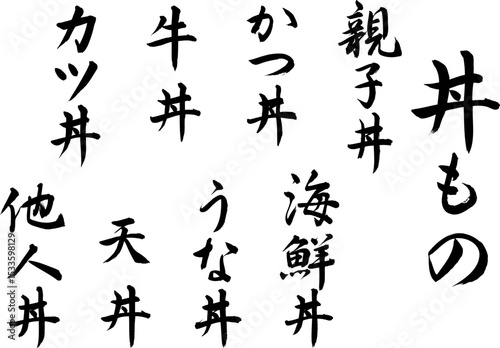 丼もの
親子丼
かつ丼
牛丼
カツ丼
海鮮丼
うな丼
天丼
他人丼
Adobe Stock | #1533598129